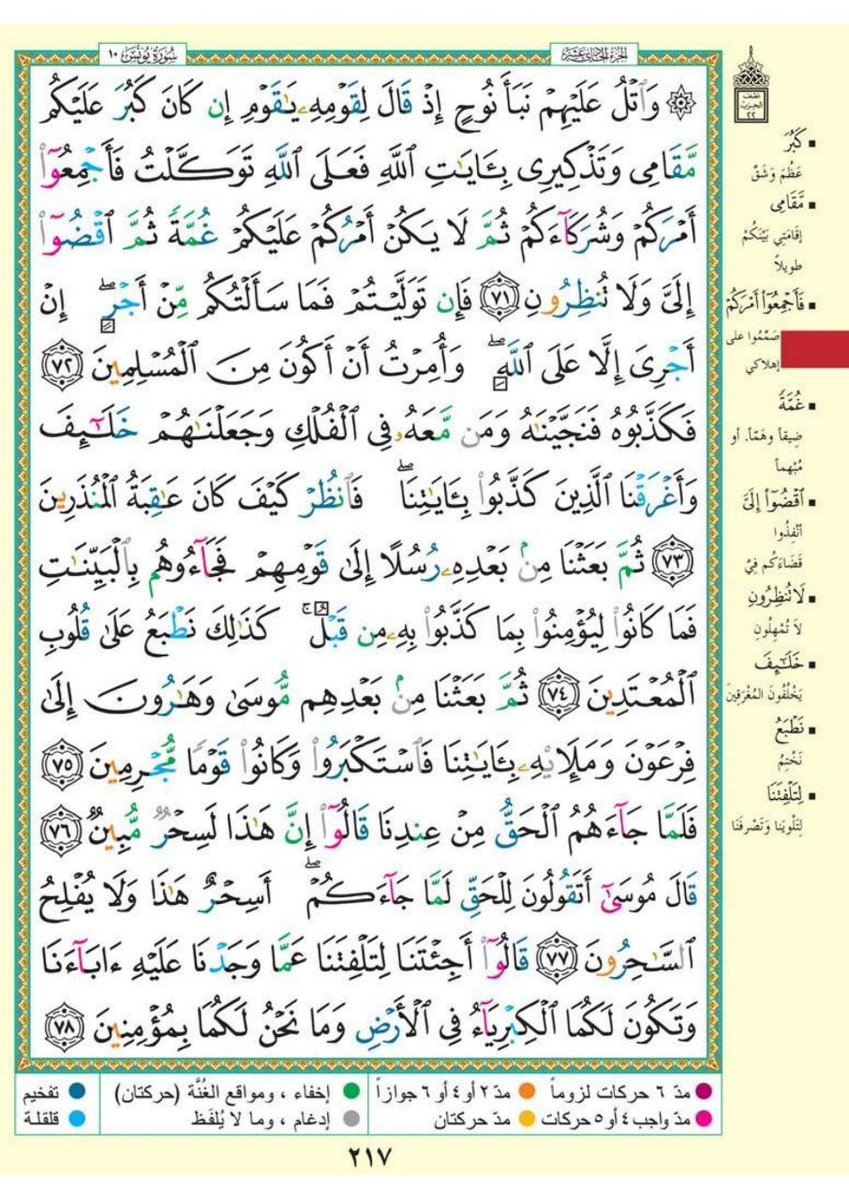 سُورَةُ يُونُس ١٠
الجُزءُ الحَادِي عَشَر
۞ وَٱتۡلُ عَلَيۡهِمۡ نَبَأَ نُوحٍ إِذۡ قَالَ لِقَوۡمِهِۦ يَٰقَوۡمِ إِن كَانَ كَبُرَ عَلَيۡكُم
مَّقَامِي وَتَذۡكِيرِي بِـَٔايَٰتِ ٱللَّهِ فَعَلَى ٱللَّهِ تَوَكَّلۡتُ فَأَجۡمِعُوٓاْ
أَمۡرَكُمۡ وَشُرَكَآءَكُمۡ ثُمَّ لَا يَكُنۡ أَمۡرُكُمۡ عَلَيۡكُمۡ غُمَّةٗ ثُمَّ ٱقۡضُوٓاْ
إِلَيَّ وَلَا تُنظِرُونِ ٧١ فَإِن تَوَلَّيۡتُمۡ فَمَا سَأَلۡتُكُم مِّنۡ أَجۡرٍۖ إِنۡ
أَجۡرِيَ إِلَّا عَلَى ٱللَّهِۖ وَأُمِرۡتُ أَنۡ أَكُونَ مِنَ ٱلۡمُسۡلِمِينَ ٧٢
فَكَذَّبُوهُ فَنَجَّيۡنَٰهُ وَمَن مَّعَهُۥ فِي ٱلۡفُلۡكِ وَجَعَلۡنَٰهُمۡ خَلَٰٓئِفَ
وَأَغۡرَقۡنَا ٱلَّذِينَ كَذَّبُواْ بِـَٔايَٰتِنَاۖ فَٱنظُرۡ كَيۡفَ كَانَ عَٰقِبَةُ ٱلۡمُنذَرِينَ
٧٣ ثُمَّ بَعَثۡنَا مِنۢ بَعۡدِهِۦ رُسُلًا إِلَىٰ قَوۡمِهِمۡ فَجَآءُوهُم بِٱلۡبَيِّنَٰتِ
فَمَا كَانُواْ لِيُؤۡمِنُواْ بِمَا كَذَّبُواْ بِهِۦ مِن قَبۡلُۚ كَذَٰلِكَ نَطۡبَعُ عَلَىٰ قُلُوبِ
ٱلۡمُعۡتَدِينَ ٧٤ ثُمَّ بَعَثۡنَا مِنۢ بَعۡدِهِم مُّوسَىٰ وَهَٰرُونَ إِلَىٰ
فِرۡعَوۡنَ وَمَلَإِيْهِۦ بِـَٔايَٰتِنَا فَٱسۡتَكۡبَرُواْ وَكَانُواْ قَوۡمٗا مُّجۡرِمِينَ ٧٥
فَلَمَّا جَآءَهُمُ ٱلۡحَقُّ مِنۡ عِندِنَا قَالُوٓاْ إِنَّ هَٰذَا لَسِحۡرٞ مُّبِينٞ ٧٦
قَالَ مُوسَىٰٓ أَتَقُولُونَ لِلۡحَقِّ لَمَّا جَآءَكُمۡۖ أَسِحۡرٌ هَٰذَا وَلَا يُفۡلِحُ
ٱلسَّٰحِرُونَ ٧٧ قَالُوٓاْ أَجِئۡتَنَا لِتَلۡفِتَنَا عَمَّا وَجَدۡنَا عَلَيۡهِ ءَابَآءَنَا
وَتَكُونَ لَكُمَا ٱلۡكِبۡرِيَآءُ فِي ٱلۡأَرۡضِ وَمَا نَحۡنُ لَكُمَا بِمُؤۡمِنِينَ ٧٨
نصف
الحزب
٢٢
كَبُرَ
عَظُمَ وَشَقَّ
مَّقَامِي
إقَامَتِي بَيْنَكُمْ
طويلاً
فَأَجۡمِعُوٓاْ أَمۡرَكُمۡ
صَمِّمُوا على
إهلاكي
غُمَّةً
ضِيقاً وهَمّاً. أو
مُبْهماً
ٱقۡضُوٓاْ إِلَيَّ
أنْفِذُوا
قَضَاءَكُم فِيَّ
لَا تُنظِرُونِ
لاَ تُمْهِلُونِ
خَلَٰٓئِفَ
يَخْلُفُونَ المُغْرَقِينَ
نَطۡبَعُ
نَخْتِمُ
لِتَلۡفِتَنَا
لِتَلْوِيَنا وَتَصْرِفَنَا
مدّ ٦ حركات لزوماً مدّ ٢ أو ٤ أو ٦ جوازاً إخفاء ، ومواقع الغُنَّة (حركتان) تفخيم
مدّ واجب ٤ أو ٥ حركات مدّ حركتان إدغام ، وما لا يُلفَظ قلقلة
٢١٧